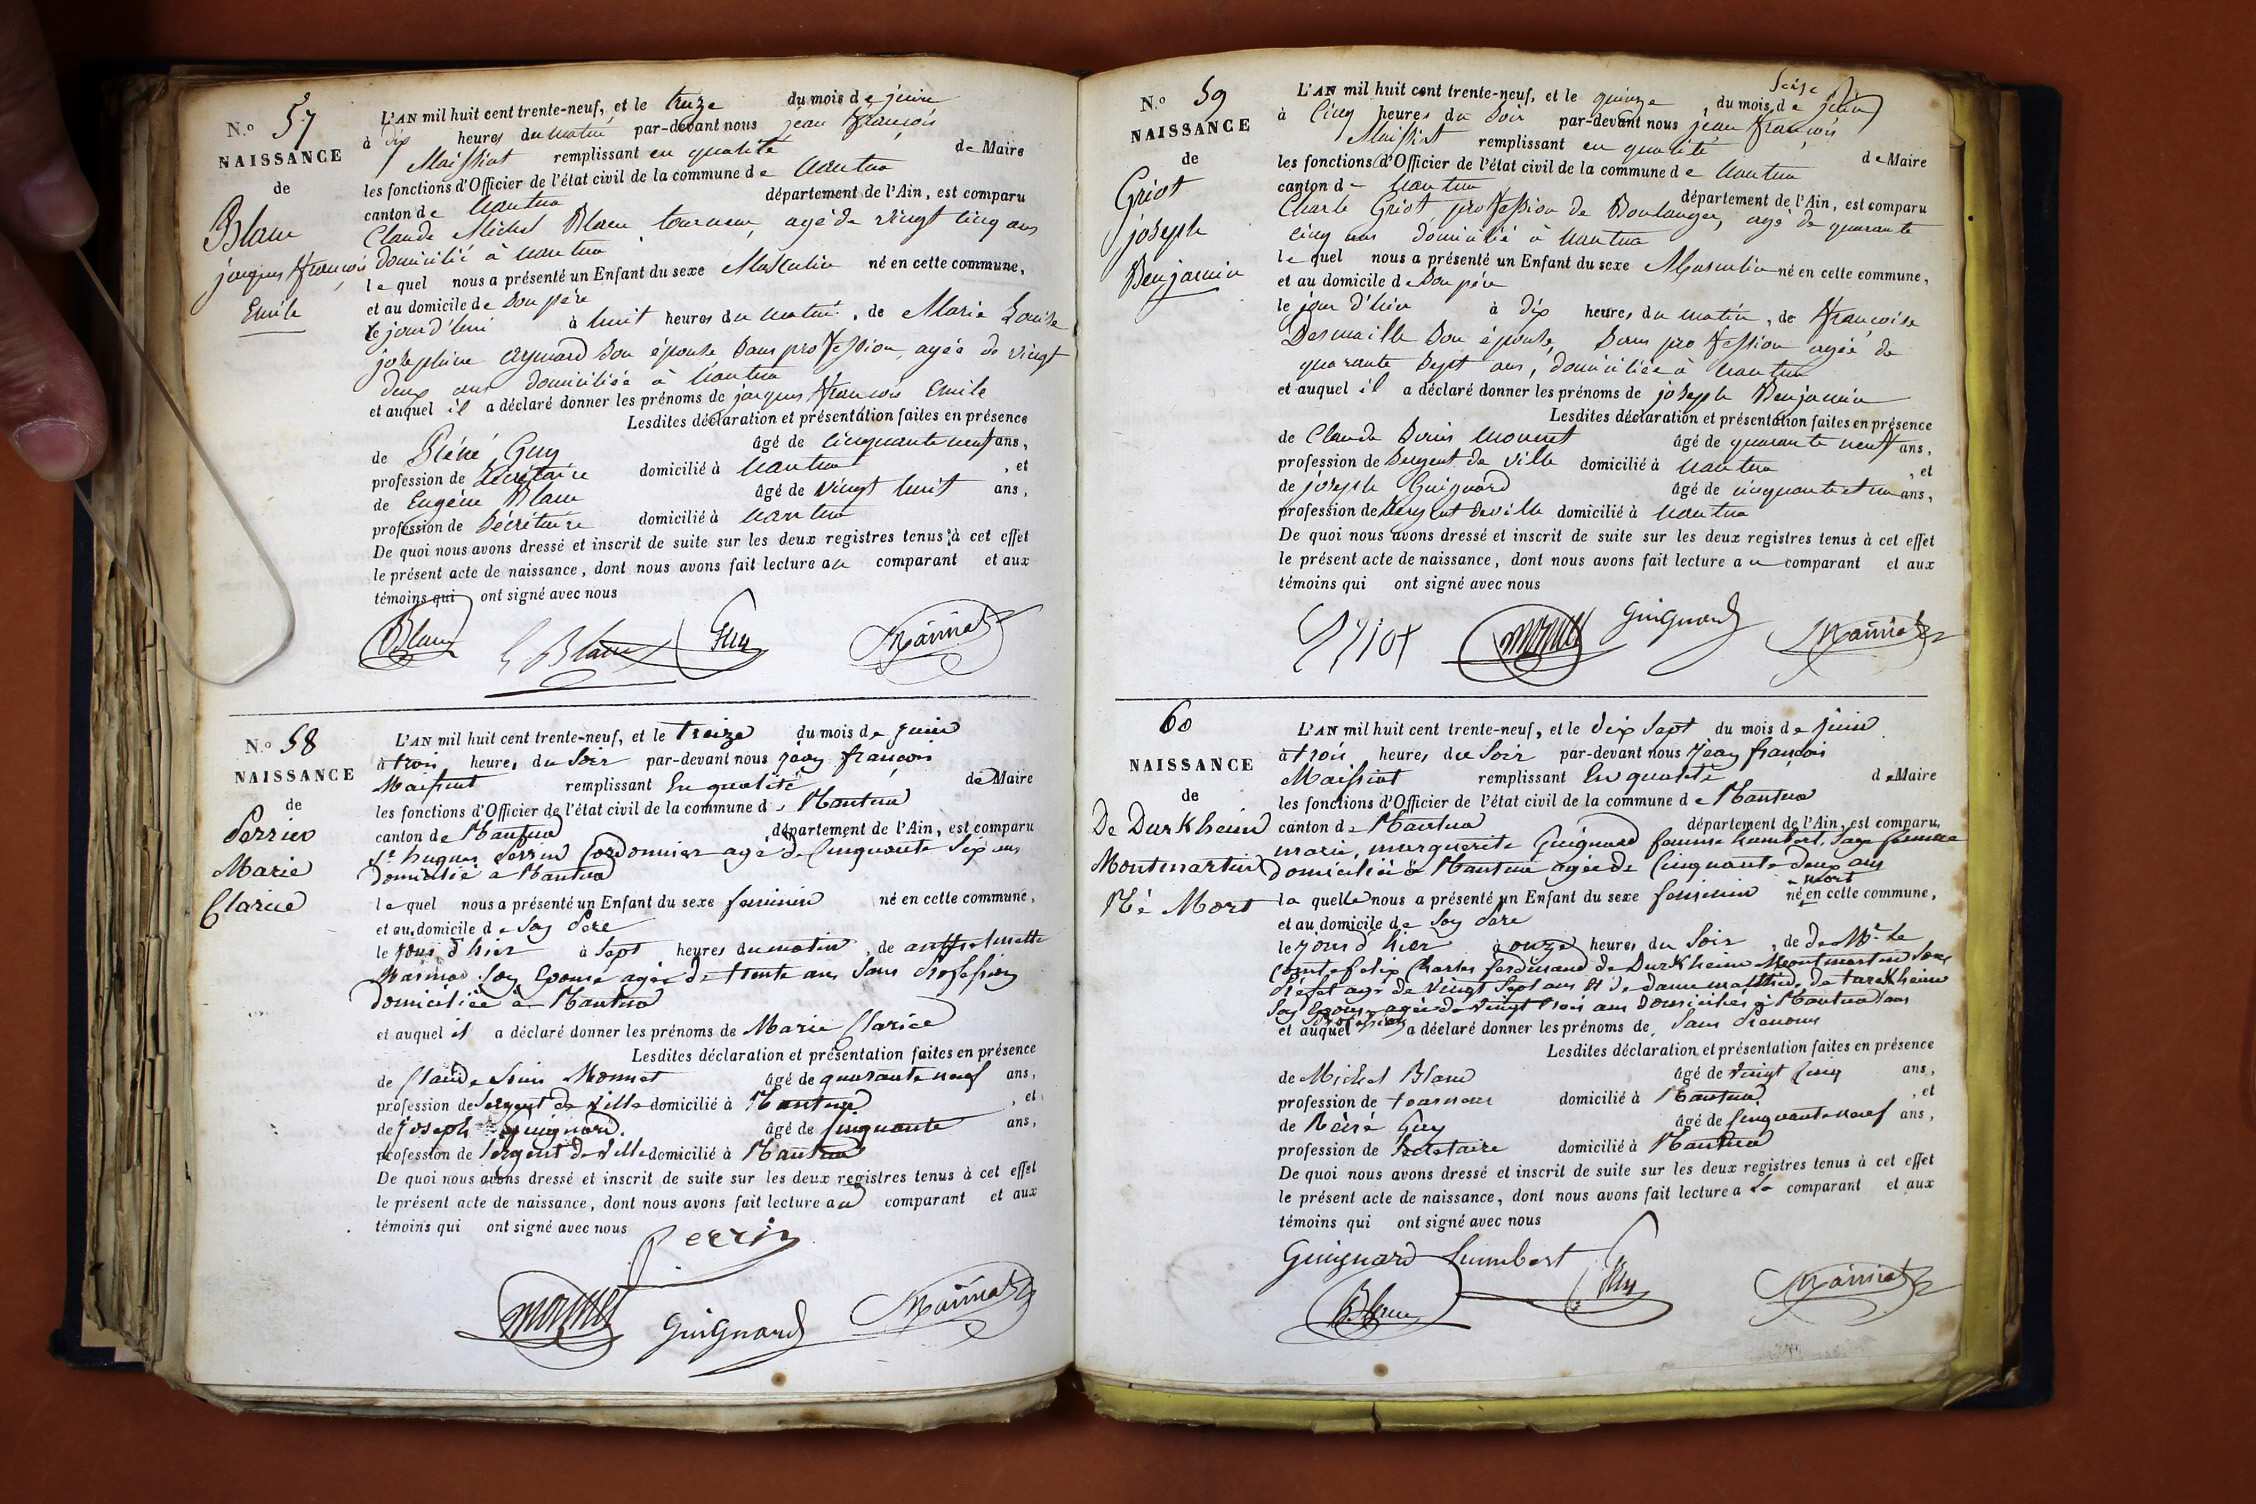 N.o 57
NAISSANCE
de
Blanc
jacques françois
Emile
L'AN mil huit cent trente-neuf, et le treize du mois de juin
à dix heures du matin par-devant nous jean françois
Maissiat remplissant en qualité de Maire
les fonctions d'Officier de l'état civil de la commune de Nantua
canton de Nantua département de l'Ain, est comparu
Claude Michel Blanc tourneur, agé de vingt cinq ans
domicilié à Nantua
lequel nous a présenté un Enfant du sexe Masculin né en cette commune,
et au domicile de son père
le jour d'hui à huit heures du matin, de Marie Louise
josephine Aymard son épouse sans profession, agée de vingt
deux ans domiciliée à Nantua
et auquel il a déclaré donner les prénoms de jacques françois Emile
Lesdites déclaration et présentation faites en présence
de Réné Guy âgé de cinquante neuf ans,
profession de Secrétaire domicilié à Nantua, et
de Eugène Blanc âgé de vingt huit ans,
profession de Sécrétaire domicilié à Nantua
De quoi nous avons dressé et inscrit de suite sur les deux registres tenus à cet effet
le présent acte de naissance, dont nous avons fait lecture au comparant et aux
témoins qui ont signé avec nous
Blanc Blanc Guy Maissiat
N.o 58
NAISSANCE
de
Perrin
Marie
Clarice
L'AN mil huit cent trente-neuf, et le treize du mois de juin
à trois heures du soir par-devant nous jean françois
Maissiat remplissant En qualité de Maire
les fonctions d'Officier de l'état civil de la commune de Nantua
canton de Nantua département de l'Ain, est comparu
Sr hugues Perrin Cordonnier agé de Cinquante Six ans
domicilié à Nantua
lequel nous a présenté un Enfant du sexe feminin né en cette commune,
et au domicile de son Pere
le jour d'hier à sept heures du matin, de
son Epouse agée de trente ans sans Profession
domiciliée à Nantua
et auquel il a déclaré donner les prénoms de Marie Clarice
Lesdites déclaration et présentation faites en présence
de Claude Monnet âgé de quarante neuf ans,
profession de Sergent de Ville domicilié à Nantua, et
de joseph Guignard âgé de Cinquante ans,
profession de Sergent de Ville domicilié à Nantua
De quoi nous avons dressé et inscrit de suite sur les deux registres tenus à cet effet
le présent acte de naissance, dont nous avons fait lecture au comparant et aux
témoins qui ont signé avec nous
Perrin
Monnet Guignard Maissiat
N.o 59
NAISSANCE
de
Griot
joseph
Benjamin
Seize
L'AN mil huit cent trente-neuf, et le quinze, du mois de juin
à Cinq heures du soir par-devant nous jean françois
Maissiat remplissant en qualité de Maire
les fonctions d'Officier de l'état civil de la commune de Nantua
canton de Nantua département de l'Ain, est comparu
Charle Griot, profession de Boulanger, agé de quarante
cinq ans domicilié à Nantua
lequel nous a présenté un Enfant du sexe Masculin né en cette commune,
et au domicile de son père
le jour d'hier à dix heures du matin, de françoise
Desmaille son épouse, sans profession agée de
quarante sept ans, domiciliée à Nantua
et auquel il a déclaré donner les prénoms de joseph Benjamin
Lesdites déclaration et présentation faites en présence
de Claude Monnet âgé de quarante neuf ans,
profession de Sergent de Ville domicilié à Nantua, et
de joseph Guignard âgé de cinquante et un ans,
profession de Sergent de ville domicilié à Nantua
De quoi nous avons dressé et inscrit de suite sur les deux registres tenus à cet effet
le présent acte de naissance, dont nous avons fait lecture au comparant et aux
témoins qui ont signé avec nous
Griot Monnet Guignard Maissiat
60
NAISSANCE
de
De Durkheim
Montmartin
Né Mort
L'AN mil huit cent trente-neuf, et le dix sept du mois de juin
à trois heures du Soir par-devant nous jean françois
Maissiat remplissant En qualité de Maire
les fonctions d'Officier de l'état civil de la commune de Nantua
canton de Nantua département de l'Ain, est comparu
marie, marguerite Guignard femme humbert, Sage femme
domiciliée à Nantua agée de Cinquante deux ans
mort
la quelle nous a présenté un Enfant du sexe feminin né en cette commune,
et au domicile de son Pere
le jour d'hier à onze heures du Soir, de de Mr le
Comte felix Charles ferdinand de Durkheim Montmartin Sous
Préfet agé de vingt sept ans et de dame mathilde de turckheim
son Epouse agée de vingt trois ans domiciliés à Nantua sans
profession
et auquel a déclaré donner les prénoms de Sans Prenoms
Lesdites déclaration et présentation faites en présence
de Michel Blanc âgé de vingt Cinq ans,
profession de tourneur domicilié à Nantua, et
de Réné Guy âgé de Cinquante neuf ans,
profession de Secretaire domicilié à Nantua
De quoi nous avons dressé et inscrit de suite sur les deux registres tenus à cet effet
le présent acte de naissance, dont nous avons fait lecture a la comparant et aux
témoins qui ont signé avec nous
Guignard humbert Guy
Blanc Maissiat